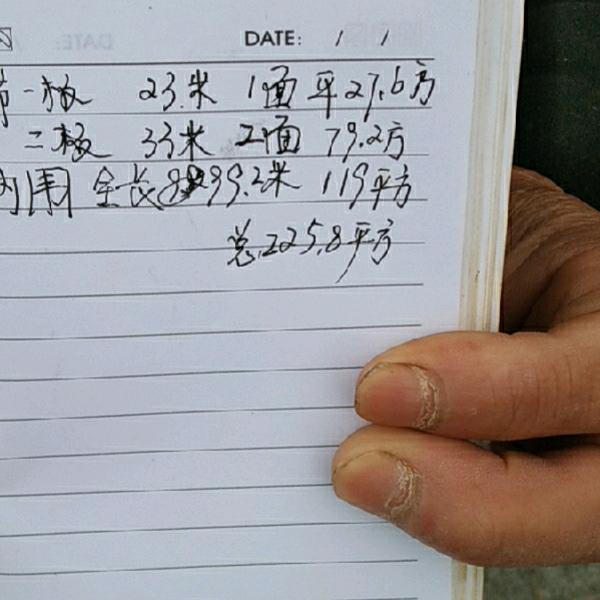 DATE: / /
第一板 23米 1面 平27.6方
二板 33米 2面 79.2方
内围 全长99.2米 119平方
总225.8平方